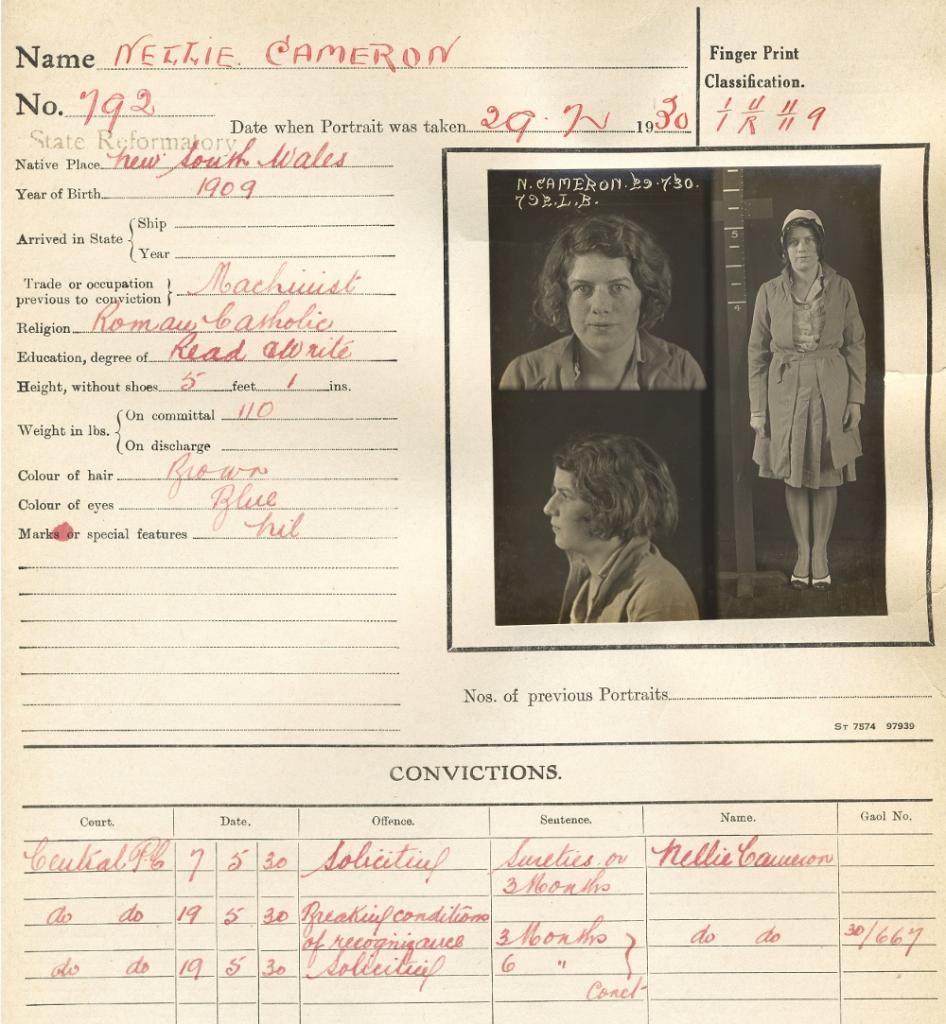 Name NELLIE CAMERON
Finger Print
Classification.
No. 792
Date when Portrait was taken 29.7 1930
1 U 11 9
1 R 11
State Reformatory
Native Place New South Wales
Year of Birth 1909
Arrived in State { Ship
Year
Trade or occupation
previous to conviction } Machinist
Religion Roman Catholic
Education, degree of Read & Write
Height, without shoes 5 feet 1 ins.
Weight in lbs. { On committal 110
On discharge
Colour of hair Brown
Colour of eyes Blue
Marks or special features Nil
N. CAMERON. 29.7.30.
792.L.B.
5
4
Nos. of previous Portraits
ST 7574 97939
CONVICTIONS.
Court. Date. Offence. Sentence. Name. Gaol No.
Central P.C 7 5 30 Soliciting Sureties or Nellie Cameron
3 Months
do do 19 5 30 Breaking conditions
of recognizance 3 Months } do do 30/667
do do 19 5 30 Soliciting 6 "
Conct